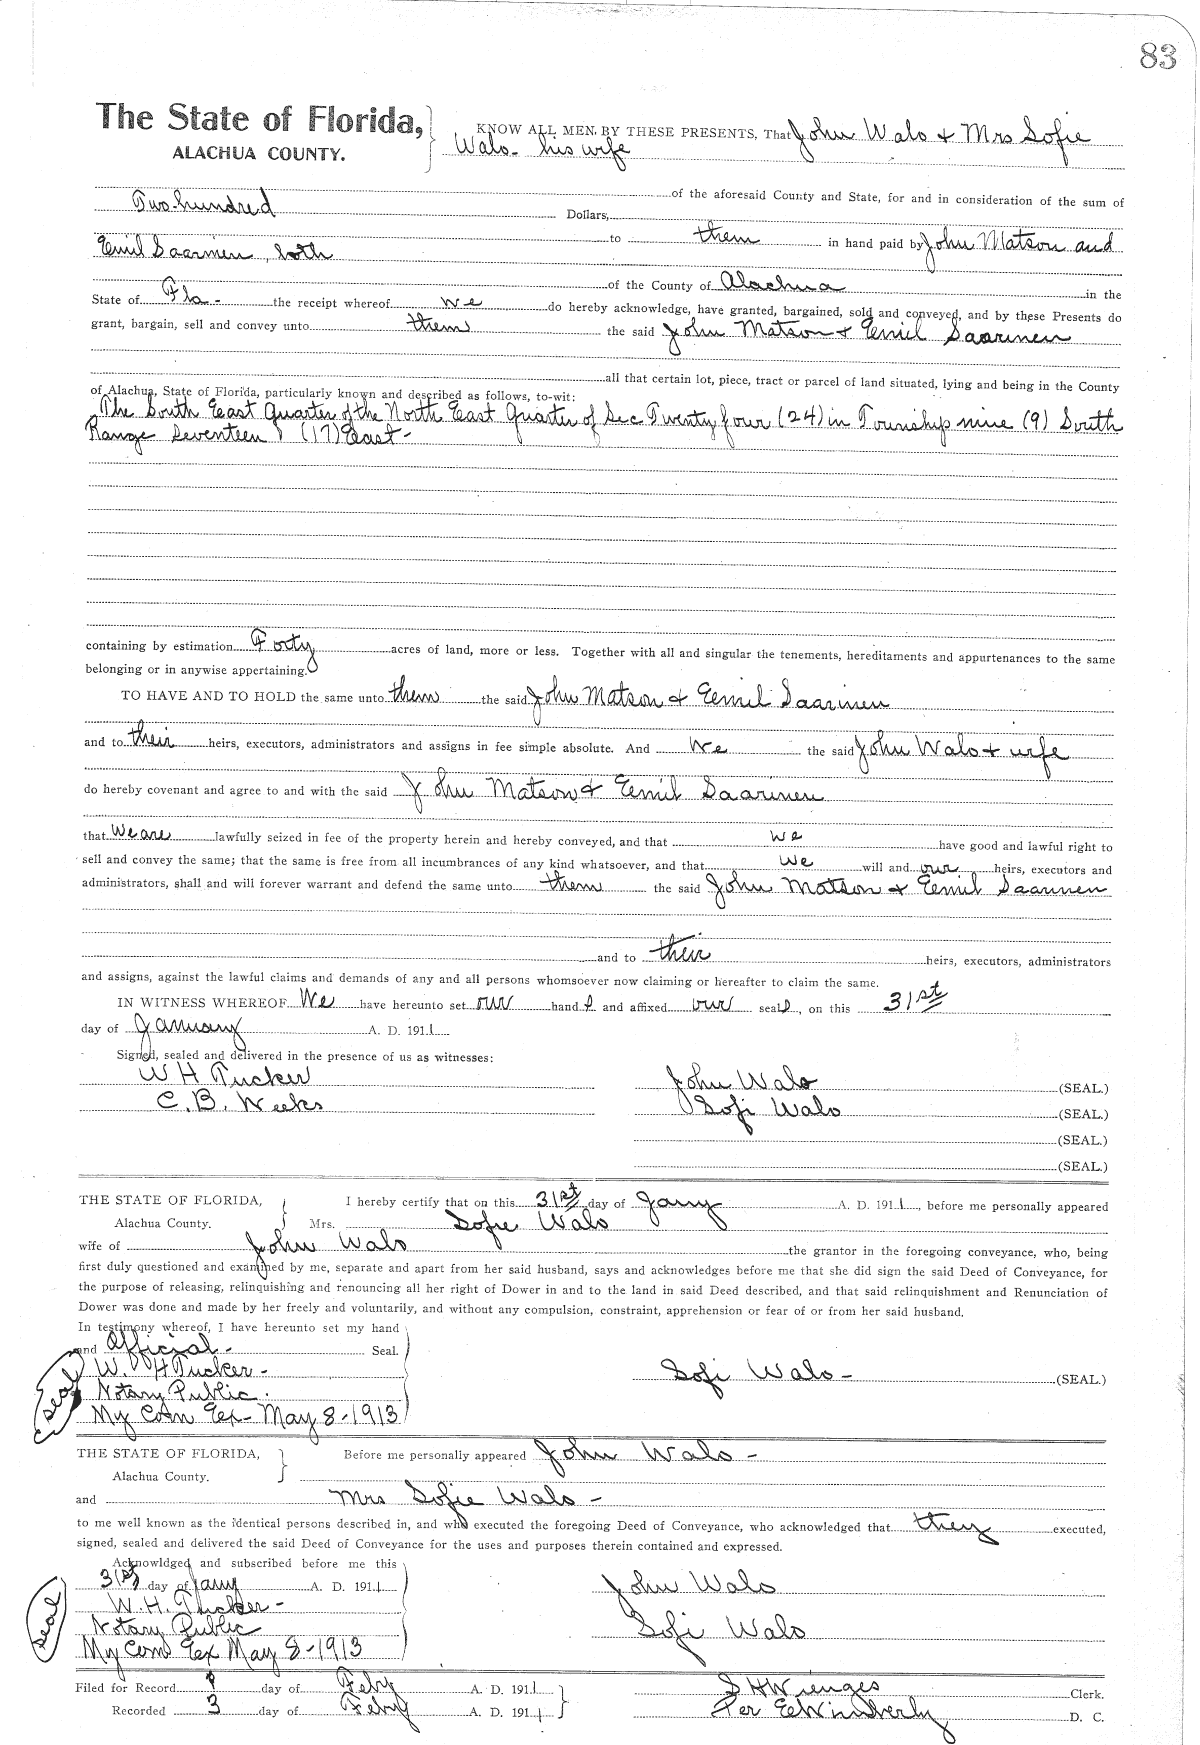 83
The State of Florida,
ALACHUA COUNTY.
KNOW ALL MEN BY THESE PRESENTS, That John Walo & Mrs Sofie
Walo - his wife
of the aforesaid County and State, for and in consideration of the sum of
Two hundred Dollars,
to them in hand paid by John Matson and
Eemil Saarinen, both
of the County of Alachua in the
State of Fla - the receipt whereof we do hereby acknowledge, have granted, bargained, sold and conveyed, and by these Presents do
grant, bargain, sell and convey unto them the said John Matson & Eemil Saarinen
all that certain lot, piece, tract or parcel of land situated, lying and being in the County
of Alachua, State of Florida, particularly known and described as follows, to-wit:
The South East Quarter of the North East Quarter of Sec Twenty four (24) in Township nine (9) South
Range Seventeen (17) East -
containing by estimation Forty acres of land, more or less. Together with all and singular the tenements, hereditaments and appurtenances to the same
belonging or in anywise appertaining.
TO HAVE AND TO HOLD the same unto them the said John Matson & Eemil Saarinen
and to their heirs, executors, administrators and assigns in fee simple absolute. And we the said John Walo & wife
do hereby covenant and agree to and with the said John Matson & Eemil Saarinen
that we are lawfully seized in fee of the property herein and hereby conveyed, and that we have good and lawful right to
sell and convey the same; that the same is free from all incumbrances of any kind whatsoever, and that we will and our heirs, executors and
administrators, shall and will forever warrant and defend the same unto them the said John Matson & Eemil Saarinen
and to their heirs, executors, administrators
and assigns, against the lawful claims and demands of any and all persons whomsoever now claiming or hereafter to claim the same.
IN WITNESS WHEREOF We have hereunto set our hands and affixed our seals, on this 31st
day of January A. D. 1911
Signed, sealed and delivered in the presence of us as witnesses:
W H Tucker John Walo (SEAL.)
C. B. Weeks Sofi Walo (SEAL.)
(SEAL.)
(SEAL.)
THE STATE OF FLORIDA, I hereby certify that on this 31st day of Jany A. D. 1911, before me personally appeared
Alachua County. Mrs. Sofie Walo
wife of John Walo the grantor in the foregoing conveyance, who, being
first duly questioned and examined by me, separate and apart from her said husband, says and acknowledges before me that she did sign the said Deed of Conveyance, for
the purpose of releasing, relinquishing and renouncing all her right of Dower in and to the land in said Deed described, and that said relinquishment and Renunciation of
Dower was done and made by her freely and voluntarily, and without any compulsion, constraint, apprehension or fear of or from her said husband.
In testimony whereof, I have hereunto set my hand
and Official - Seal.
W. H Tucker - Sofi Walo - (SEAL.)
Seal Notary Public.
My Com Ex - May 8 - 1913
THE STATE OF FLORIDA, Before me personally appeared John Walo -
Alachua County.
and Mrs Sofie Walo -
to me well known as the identical persons described in, and who executed the foregoing Deed of Conveyance, who acknowledged that they executed,
signed, sealed and delivered the said Deed of Conveyance for the uses and purposes therein contained and expressed.
Acknowldged and subscribed before me this
31st day of Jany A. D. 1911 John Walo
W. H. Tucker -
Seal Notary Public Sofi Walo
My Com Ex May 8 - 1913
Filed for Record day of Feby A. D. 1911 S H Wienges Clerk.
Recorded 3 day of Feby A. D. 1911 Per E Wimberly D. C.